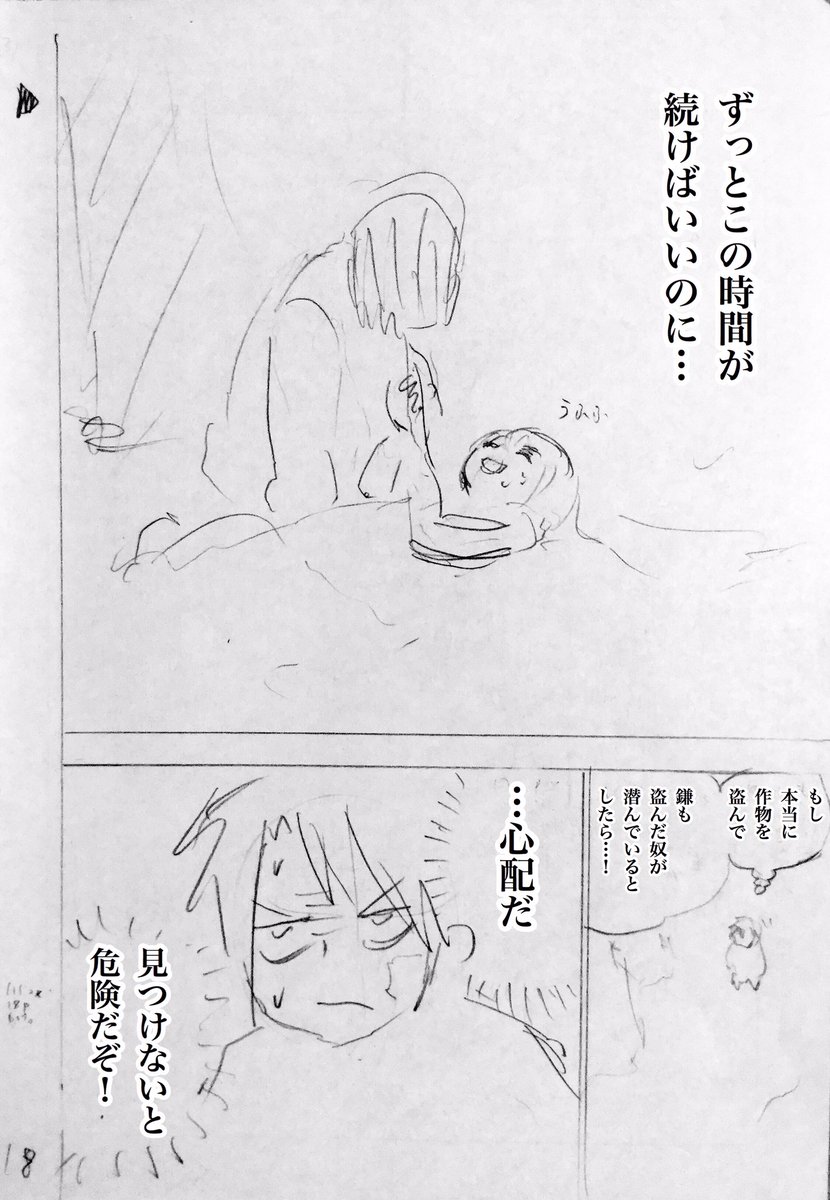 ずっとこの時間が
続けばいいのに…
うふふ
もし
本当に
作物を
盗んで
鎌も
盗んだ奴が
潜んでいると
したら…！
…心配だ
見つけないと
危険だぞ！
18